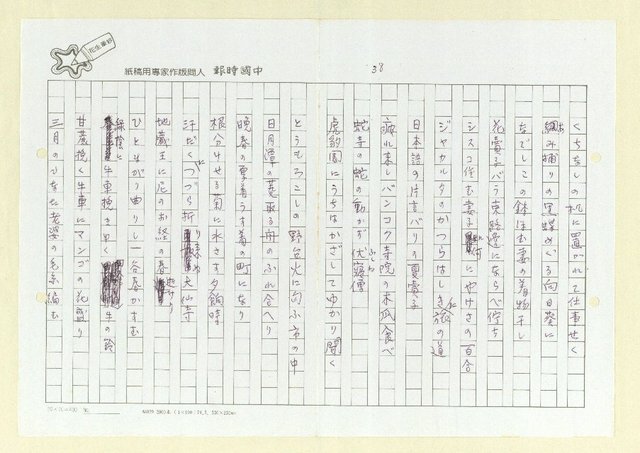 38
中國時報 人間版作家專用稿紙
くちなしの机に置かれて仕事せく
網み捕りの黒蝶めぐる向日葵に
なでしこの鉢ほむ妻の着物干し
花電子バラ東路辺にならべ佇ち
シスコ住む妻子に何やけさの百合
ジャカルタのかつらはしき旅の道
日本語の片言バリの夏電子
疲れ来しバンコク寺院の木瓜食べ
蛇寺の蛇の動かず伏寝僧
虎豹園にうちはかざしてゆかり聞く
とうもろこしの野台火に匂ふ京の中
日月潭の菱取る舟のふれ合へり
晩春の栗善うす着の町になり
根分けせる菊に水さす夕餉時
汗だくにつづら折 天仙寺
地蔵王に尼のお経の春
ひとまがり曲りし谷春かすむ
緑陰に牛車挽き早く 牛の鈴
甘蔗挽く牛車にマンゴの花盛り
三月のひなた老婆の毛糸編む